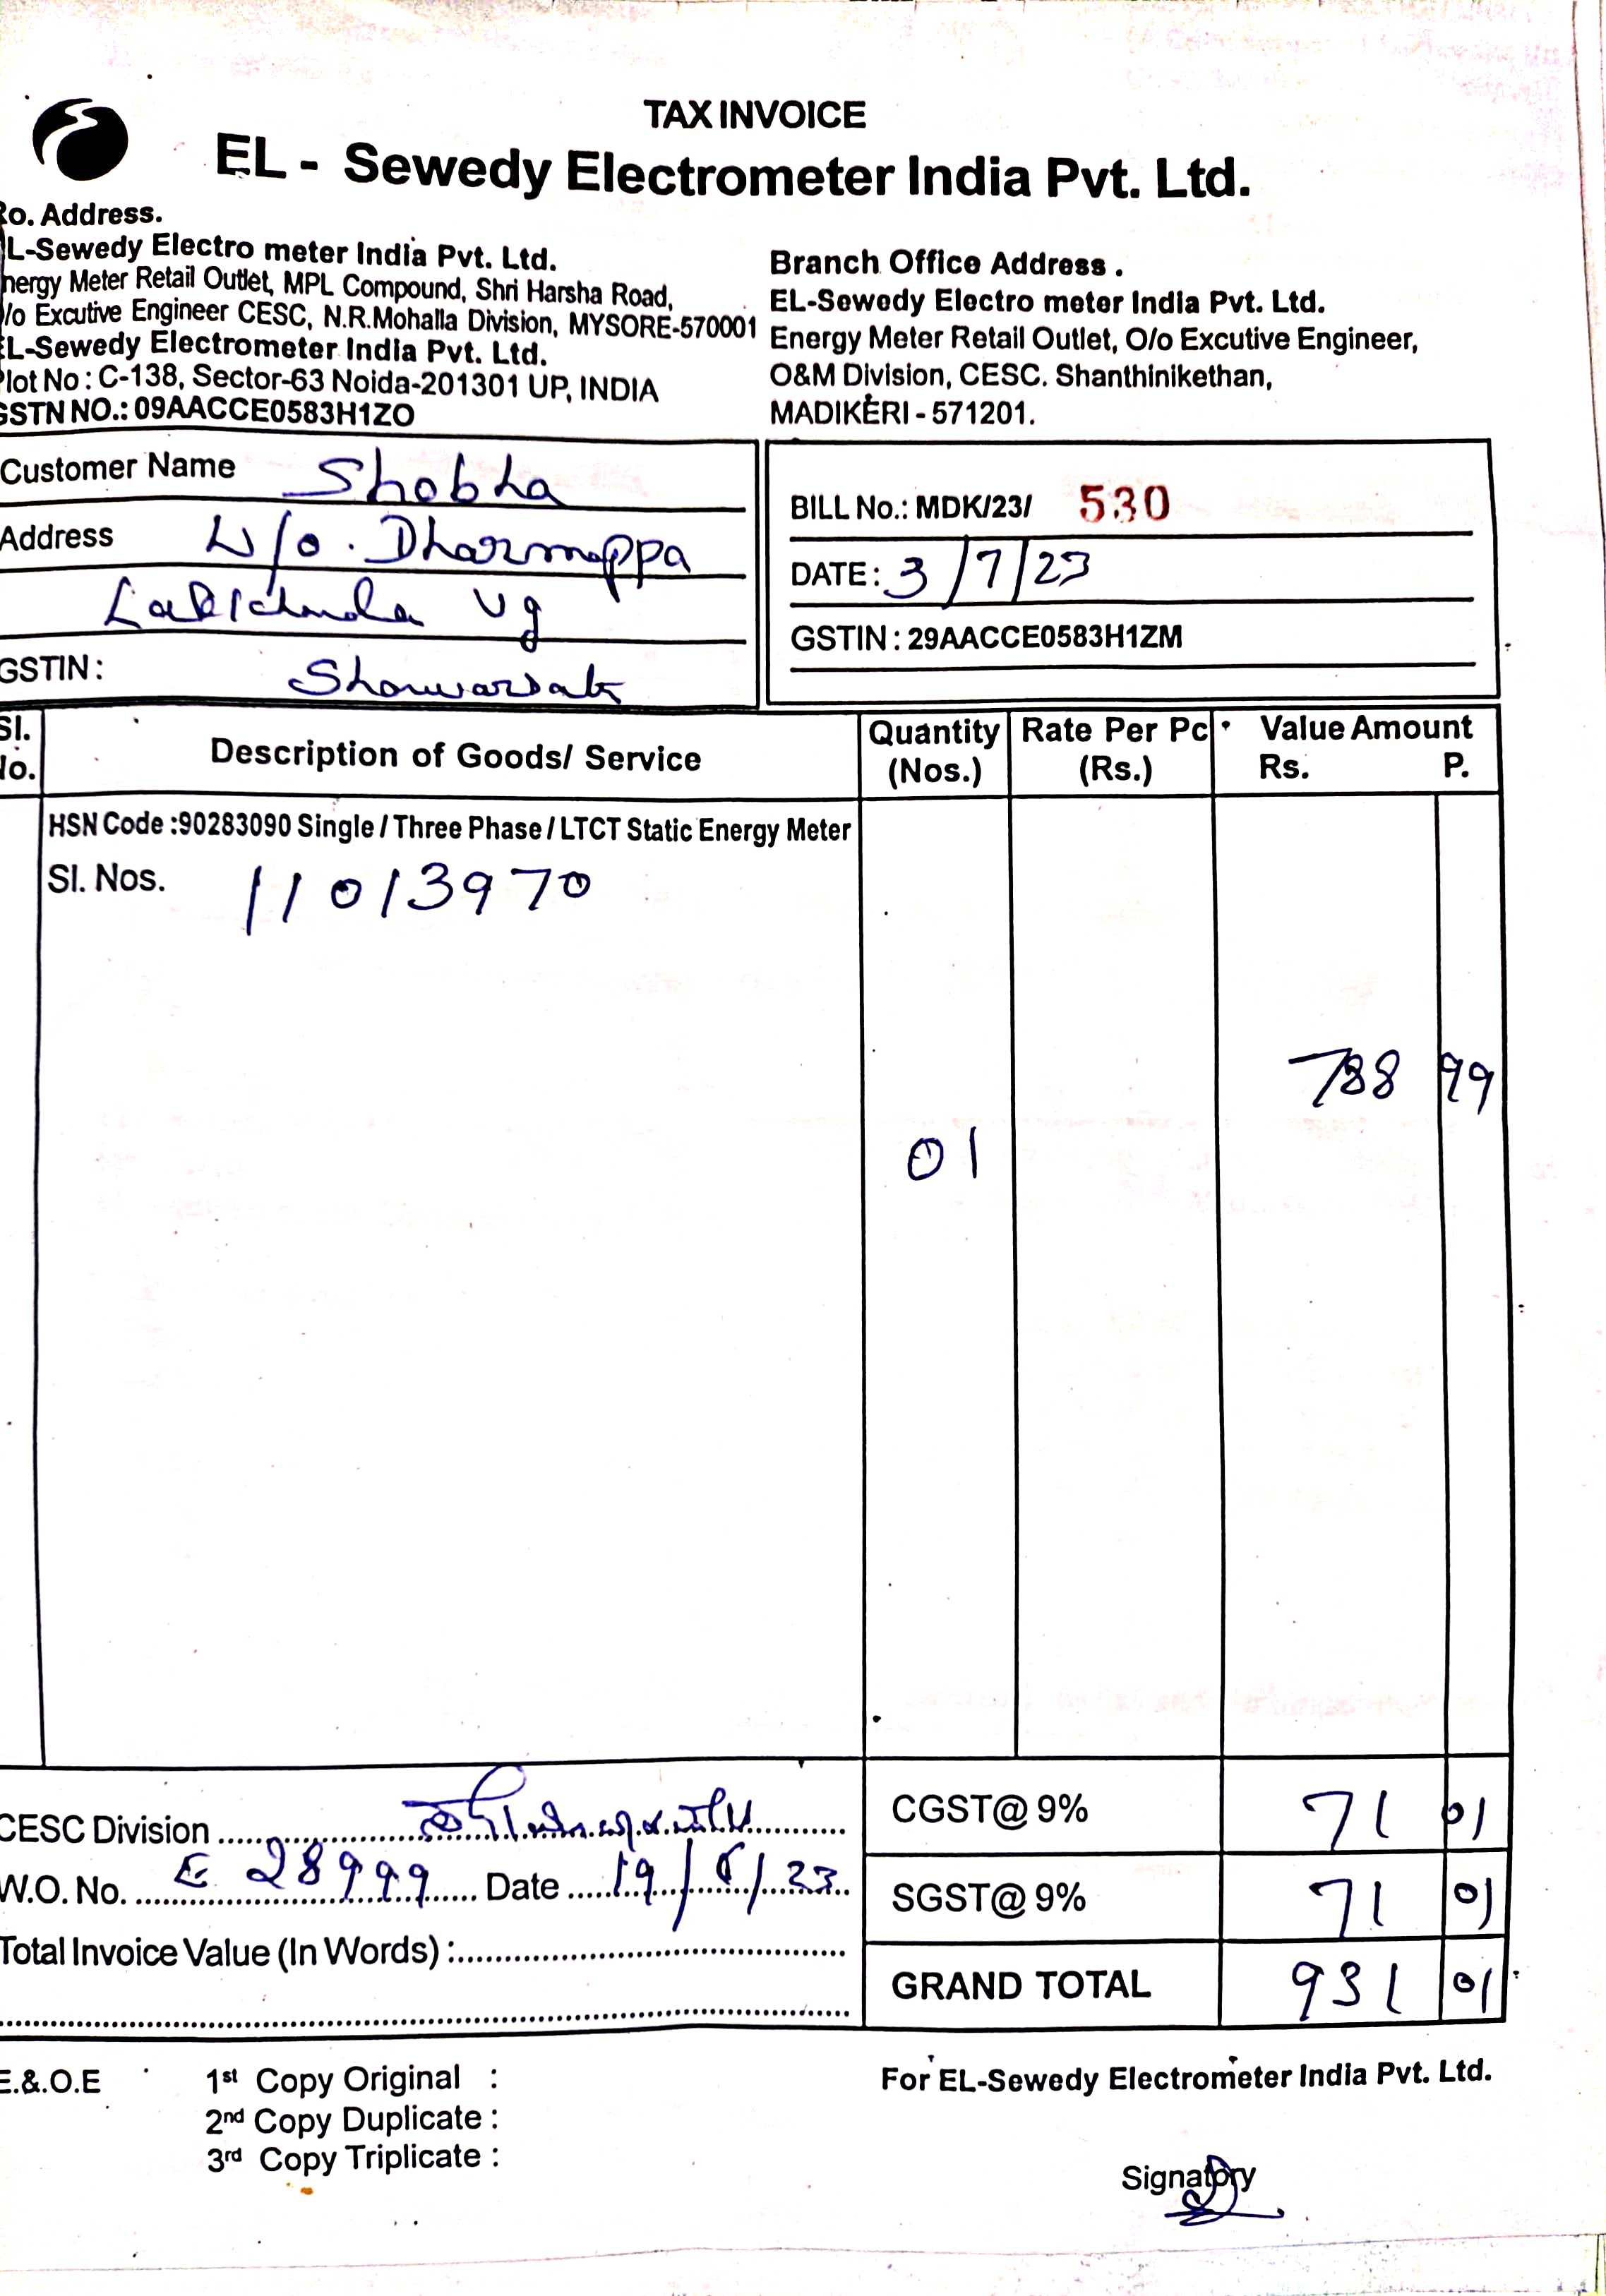 TAX INVOICE
EL - Sewedy Electrometer India Pvt. Ltd.
o. Address.
L-Sewedy Electro meter India Pvt. Ltd.
nergy Meter Retail Outlet, MPL Compound, Shri Harsha Road,
/o Excutive Engineer CESC, N.R.Mohalla Division, MYSORE-570001
L-Sewedy Electrometer India Pvt. Ltd.
lot No : C-138, Sector-63 Noida-201301 UP, INDIA
GSTN NO.: 09AACCE0583H1ZO
Branch Office Address .
EL-Sewedy Electro meter India Pvt. Ltd.
Energy Meter Retail Outlet, O/o Excutive Engineer,
O&M Division, CESC. Shanthinikethan,
MADIKERI - 571201.
Customer Name Shobha
Address W/o. Dharmappa
Vg
GSTIN :
BILL No.: MDK/23/ 530
DATE : 3/7/23
GSTIN : 29AACCE0583H1ZM
Sl. No. Description of Goods/ Service Quantity (Nos.) Rate Per Pc (Rs.) Value Amount Rs. P.
HSN Code :90283090 Single / Three Phase / LTCT Static Energy Meter
Sl. Nos. 11013970
788 99
01
CESC Division
CGST@ 9% 71 01
W.O. No. E 28999 Date 19/ /23
SGST@ 9% 71 01
Total Invoice Value (In Words) :
GRAND TOTAL 931 01
E.&.O.E 1st Copy Original :
2nd Copy Duplicate :
3rd Copy Triplicate :
For EL-Sewedy Electrometer India Pvt. Ltd.
Signatory